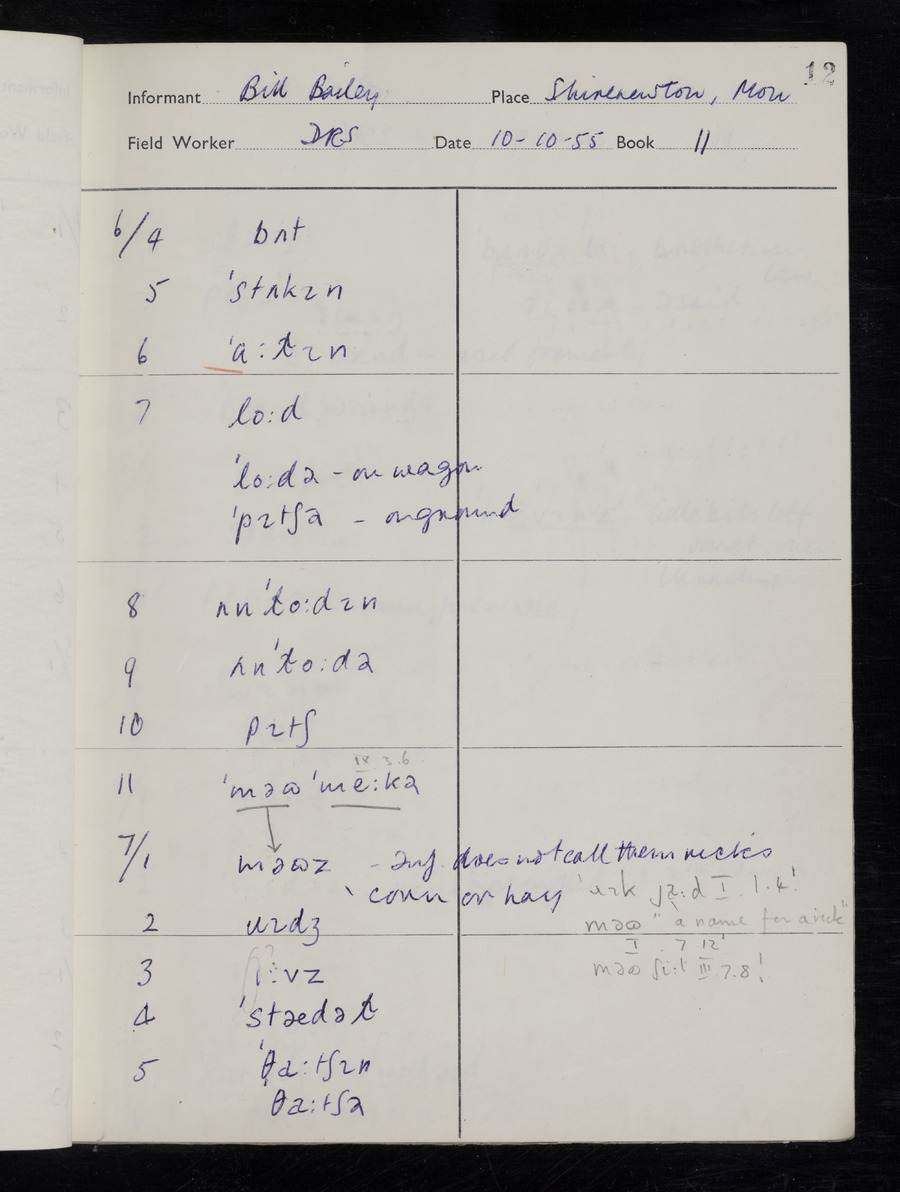 12
Informant Bill Bailey Place Shirenewton, Mon
Field Worker DRS Date 10-10-55 Book 11
6/4 bʌt
5 ˈstʌkɪn
6 ˈaːtɪn
7 loːd
ˈloːdə - on wagon
ˈpɪtʃə - on ground
8 ʌnˈloːdɪn
9 ʌnˈloːdə
10 pɪtʃ
IX 3.6
11 ˈməʊˈmeːkə
7/1 məʊz - inf. does not call them ricks
corn or hay
ˈɹɪk jaːd I.1.4!
məʊ "a name for a rick"
2 ɹɪdʒ
I.7.12
3 iːvz
məʊ I III 7.8!
4 ˈstædət
5 ˈθaːtʃɪn
ˈθaːtʃə